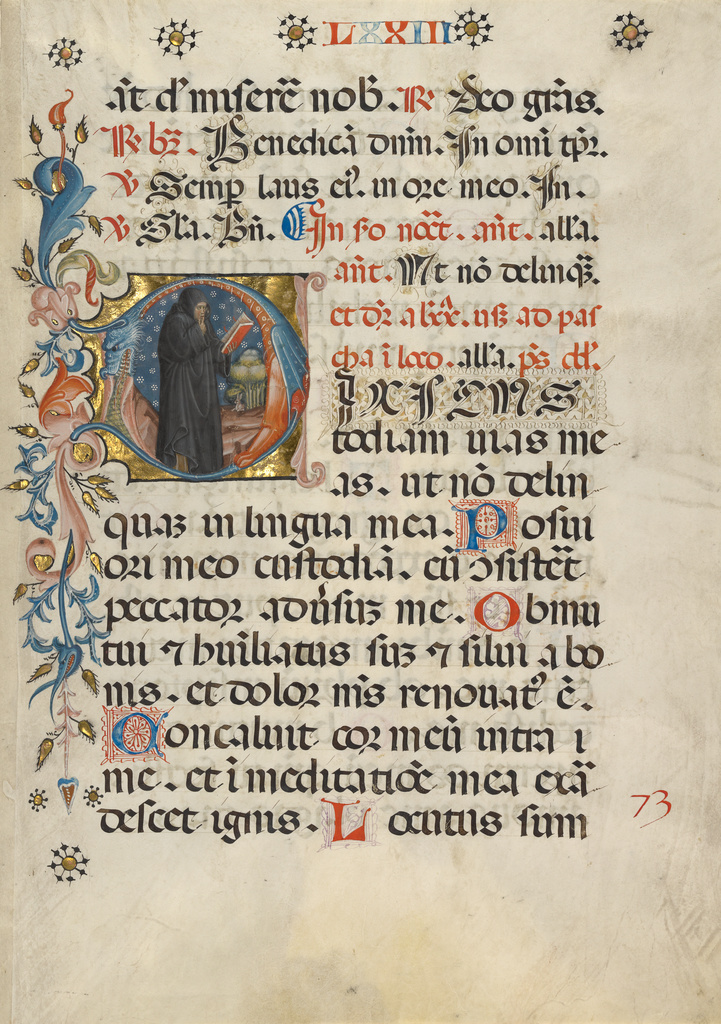 LXXIII
at d' miserē nob. R Deo grās.
R br. Benedicā dnm. In omi tpr.
V Semp laus ei'. in ore meo. In.
V Gla. Bn. In s'o noct. ant. alla.
ant. Ut nō delinqz.
et dr a lxx. usz ad pas
cha i loco. alla. ps dd.
DIXI CUS
todiam uias me
as. ut nō delin
quaz in lingua mea. Posui
ori meo custodiā. cū ɔsistet
peccator aduersuz me. Obmu
tui ⁊ humiliatus suz ⁊ silui a bo
nis. et dolor m's renouat' ē.
Concaluit cor meū intra i
me. et i meditatiōe mea exa
descet ignis. Locutus sum
73